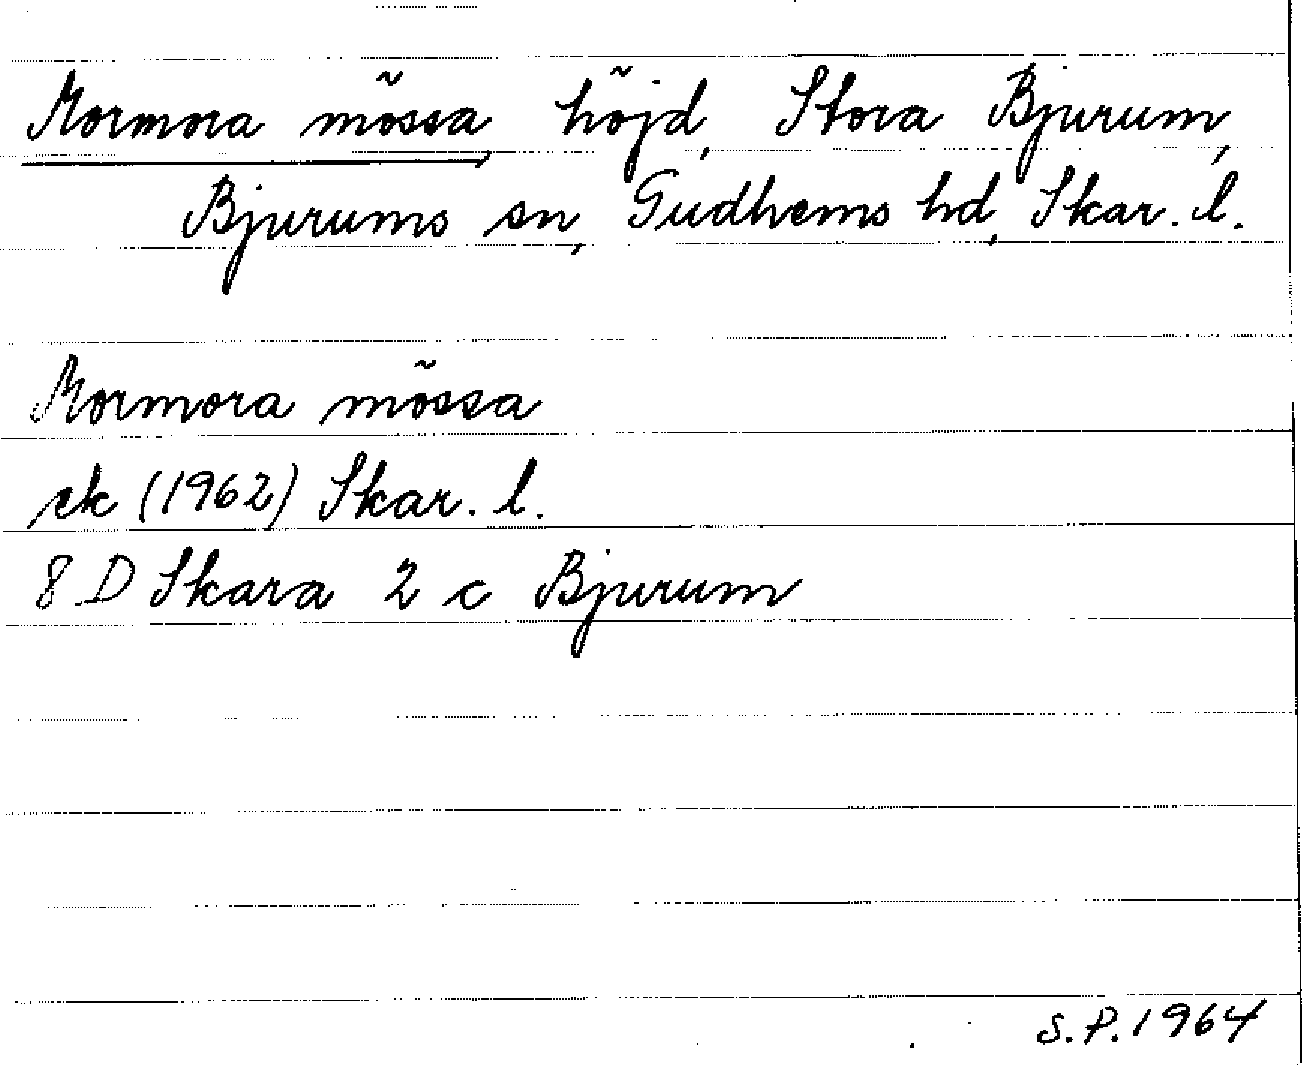 Mormora mössa, höjd, Stora Bjurum,
Bjurums sn, Gudhems hd, Skar. l.
Mormora mössa
ek (1962) Skar. l.
8 D Skara 2 c Bjurum
S.P. 1964